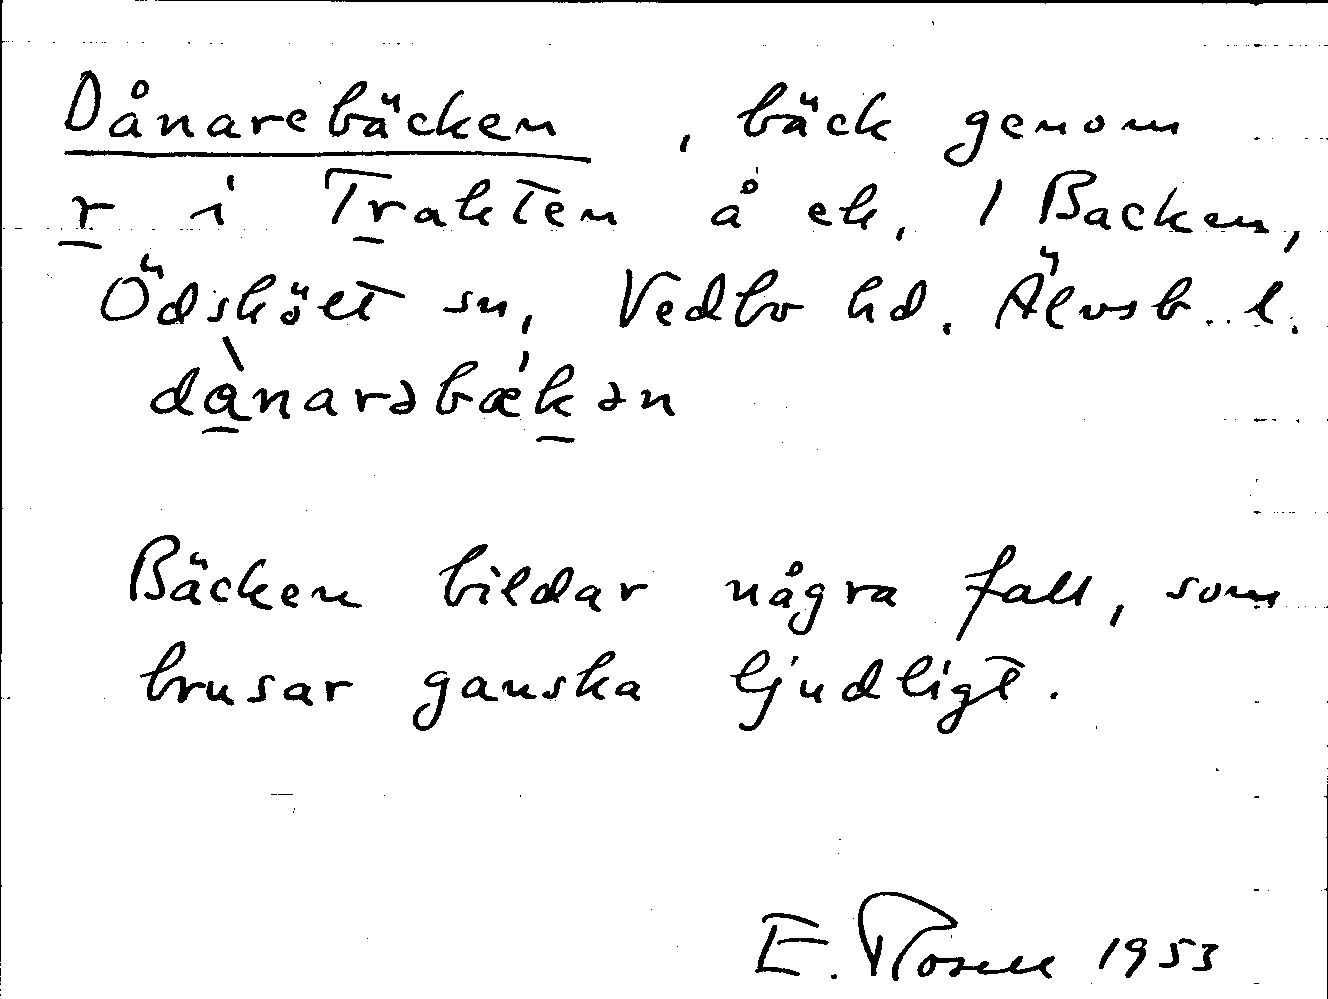 Dånarebäcken, bäck genom
r i Trakten å ek. 1 Backen,
Ödskölt sn, Vedbo hd. Älvsb. l.
dànarəbæ'kən
Bäcken bildar några fall, som
brusar ganska ljudligt.
E. Rosell 1953